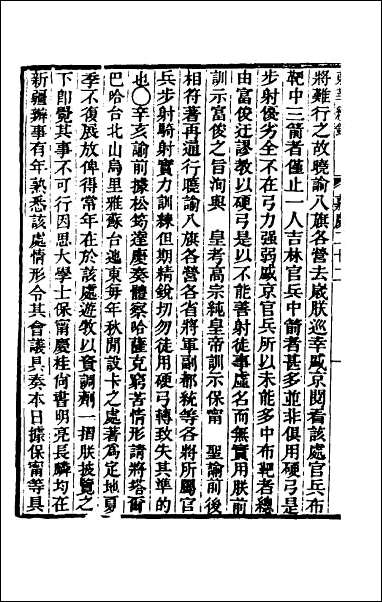 將難行之故曉諭八旗各營去歲朕巡幸盛京閱看該處官兵布
靶中三箭者僅止一人吉林官兵中箭者甚多並非俱用硬弓是
步射優劣全不在弓力强弱盛京官兵所以未能多中布靶者總
由富俊迂謬教以硬弓是以不能善射徒事虛名而無實用朕前
訓示富俊之旨洵與　皇考高宗純皇帝訓示保甯　聖諭前後
相符著再通行曉諭八旗各營各省將軍副都統等各將所屬官
兵步射騎射實力訓練但期精銳切勿徒用硬弓轉致失其準的
也〇辛亥諭前據松筠達慶奏體察哈薩克窮苦情形請將塔爾
巴哈台北山烏里雅蘇台邇東每年秋開設卡之處著爲定地夏
季不復展放俾得常年在於該處遊牧以資調劑一摺朕披覽之
下卽覺其事不可行因思大學士保甯慶桂尙書明亮長麟均在
新疆辦事有年熟悉該處情形令其會議具奏本日據保甯等具